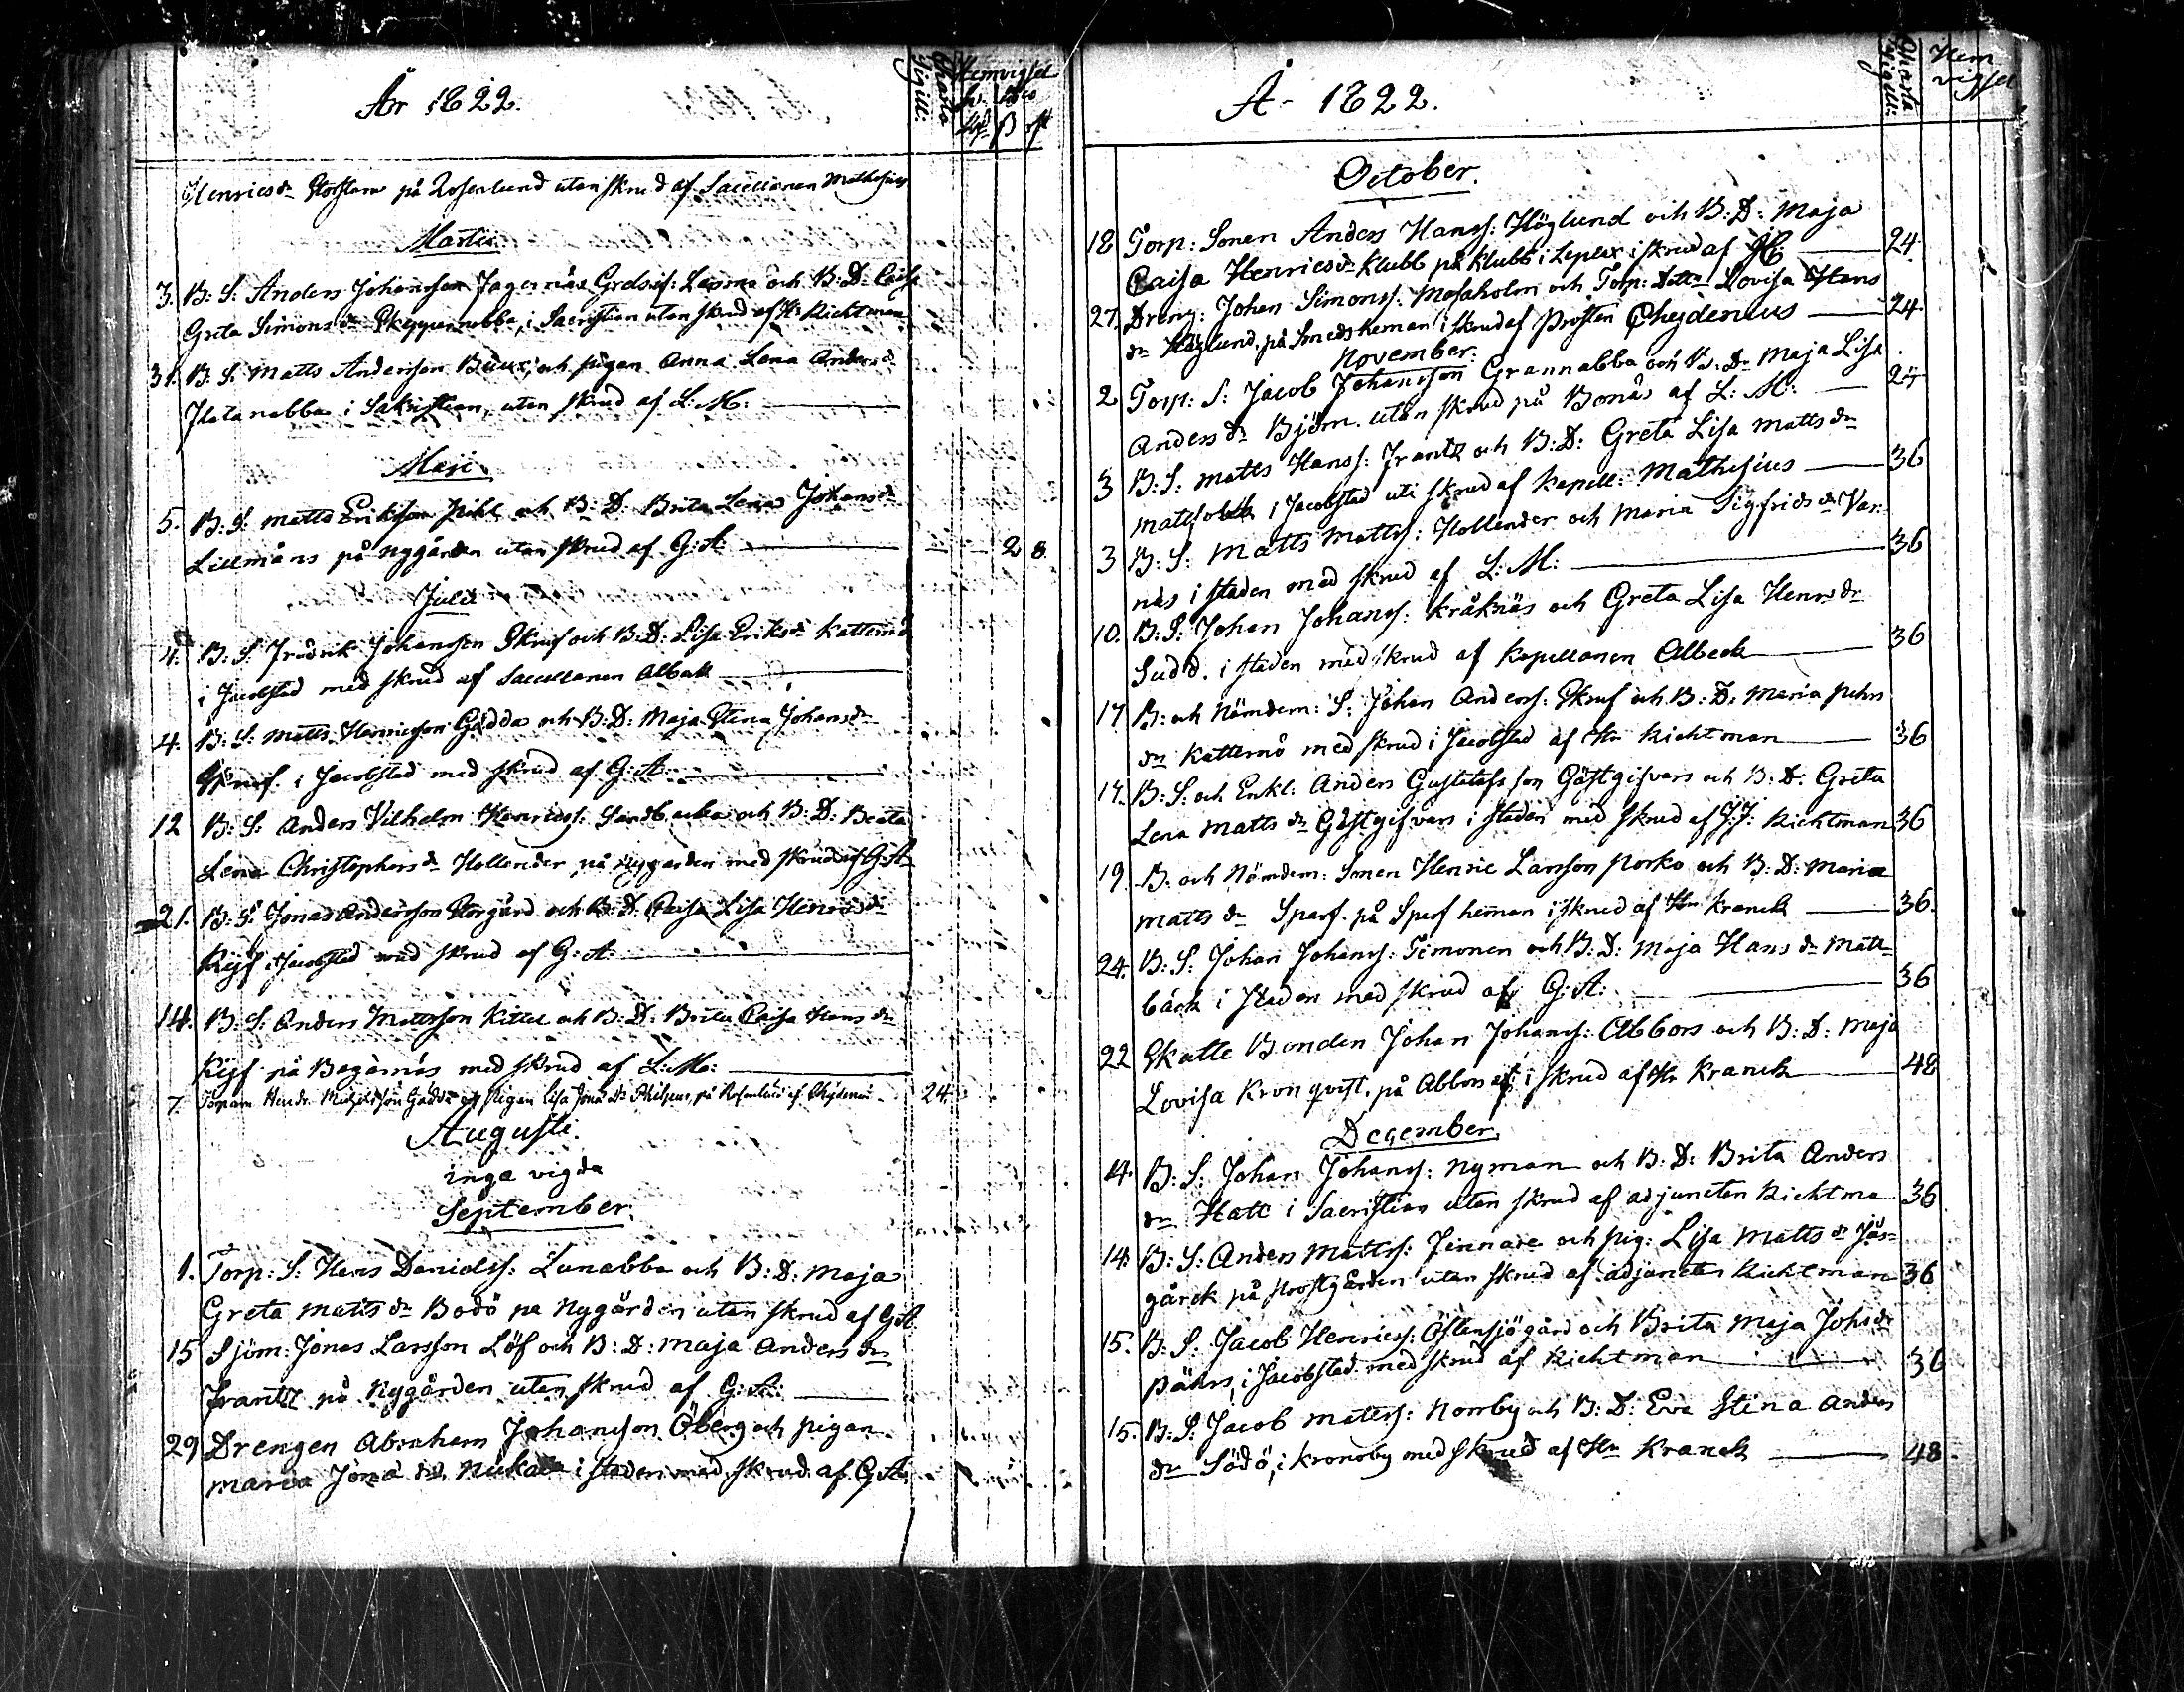 År 1822.
Charta Sigill:
Hemvigsel
ß
Henricsdr Storstare på Rosenlund utan skrud af Sacellanen Mathesius
Martii
3. B: S: Anders Johansson Jagernäs Lepma och B: D: Caisa
Greta Simonsdr Skeppernabba, i Sacristian utan skrud af Hr Richtman
31. B: S: Matts Andersson Buux, och pigan Anna Lena Andersdr
Flatanabba i Sakristian, utan skrud af L: M:
Maji
5. B: S: Matts Eriksson Pihl och B: D: Brita Lena Johansdr
Lillmåns på Nygården utan skrud af G: A: 2 8
Julii
4. B: S: Fredrik Johansson Skruf och B: D: Lisa Eriksdr Katternö
i Jacobstad med skrud af Sacellanen Albäck
4. B: S: Matts Henricsson Gädda och B: D: Maja Stina Johansdr
Skruf. i Jacobstad med skrud af G: A:
12 B: S: Anders Vilhelm Henricss: Sandbacka och B: D: Beata
Lena Christophersdr Hollender på Nygården med skrud af G: A
21. B: S: Jonas Andersson Storgård och B: D: Caisa Lisa Henricsdr
Rijf i Jacobstad med skrud af G: A:
14. B: S: Anders Mattsson Kittel och B: D: Brita Caisa Hansdr
Rijf på Bagarnäs med skrud af L: M:
7. Torparen Hindr. Gädda och Pigan Lisa Jonasdr på Rosenlund af Chydenius 24
Augusti.
inga vigda
September.
1. Torp: S: Hans Danielss: Lunabba och B: D: Maja
Greta Mattsdr Bodö på Nygården utan skrud af G: A
15 Sjöm: Jonas Larsson Löf och B: D: Maja Andersdr
Frantz på Nygården utan skrud af G: A:
29 Drengen Abraham Johansson Öberg och pigan
Maria Jonasdr i staden med skrud af G: A:
År 1822.
Charta Sigill:
Hem vigsel
October.
18 Torp: Sonen Anders Hanss: Höglund och B: D: Maja
Caisa Henricsdr Klubb på Klubb i Leplax i skrud af 24
27. Dreng: Johan Simonss: Mosaholm och Torp: Dottr Lovisa Hans
dr Höglund, på Smedsheman i skrud af Prosten Chydenius 24
November.
2 Torp: S: Jacob Johansson Grannabba och B: Dr Maja Lisa
Andersdr Björn. utan skrud på Bonäs af L: M: 24
3 B: S: Matts Hanss: Frantz och B: D: Greta Lisa Mattsdr
Mattsolck i Jacobstad uti skrud af Kapell: Mathesius 36
3 B: S: Matts Mattss: Hollender och Maria Sigfridsdr Var-
näs i staden med skrud af L: M: 36
10. B: S: Johan Johanss: Kråknäs och Greta Lisa Henrsdr
Sudd. i staden med skrud af Kapellanen Albeck 36
17 B: och Nämdem: S: Johan Anderss: Skruf och B: D: Maria Pehrs
dr Katternö med skrud i Jacobstad af Hr Richtman 36
17. B: S: och Enkl: Anders Gustafsson Gästgifvars och B: D: Greta
Lena Mattsdr Gästgifvars i staden med skrud af J: J: Richtman 36
19. B. och Nämdem: Sonen Henric Larsson Porko och B: D: Maria
Mattsdr Sparf. på Sparf heman i skrud af Hr Kranck 36.
24. B: S: Johan Johanss: Timonen och B: D: Maja Hansdr Matt-
bäck i staden med skrud af G: A: 36
22 Skatte Bonden Johan Johanss: Abbors och B: D: Maja
Lovisa Kronqvist. på Abbors i skrud af Hr Kranck 48
December.
4. B: S: Johan Johanss: Nyman och B: D: Brita Anders
dr Hatt i Sacristian utan skrud af adjuncten Richtma 36
14. B: S: Anders Mattss: Finnare och pig: Lisa Mattsdr Jås-
gårck på Prostgården utan skrud af adjuncten Richtman 36
15. B: S: Jacob Henricss: Östensjögård och Brita Maja Johsdr
Påhrs, i Jacobstad med skrud af Richtman 36
15. B: S: Jacob Mattss: Norrby och B: D: Eva Stina Anders
dr Södö, i Kronoby med skrud af Hr Kranck 48.